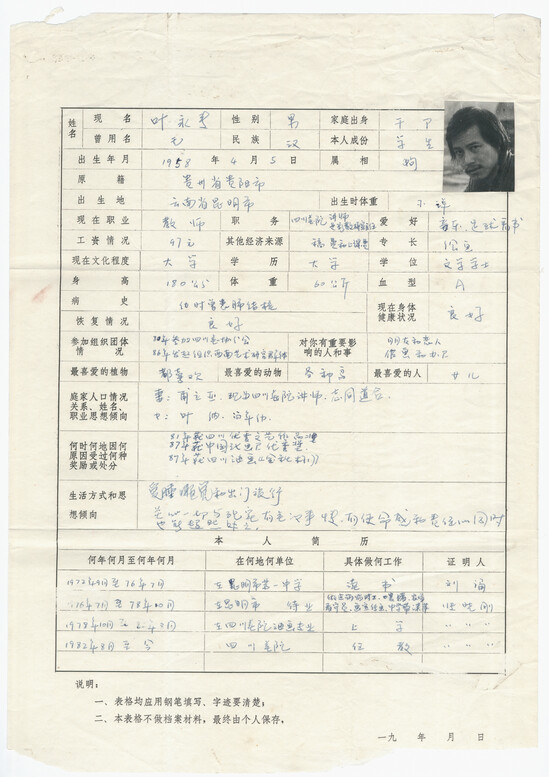 姓名 现名 叶永青 性别 男 家庭出身 干部
曾用名 无 民族 汉 本人成份 学生
出生年月 1958年4月5日 属相 狗
原籍 贵州省贵阳市
出生地 云南省昆明市 出生时体重 不详
现在职业 教师 职务 四川美院讲师 爱好 音乐、足球、看书
工资情况 97元 其他经济来源 专长 绘画
现在文化程度 大学 学历 大学 学位 文学学士
身高 180公分 体重 60公斤 血型 A
病史 幼时曾患肺结核 现在身体健康状况 良好
恢复情况 良好
参加组织团体情况 对你有重要影响的人和事 朋友和恋人
86年发起组织西南艺术研究群体
最喜爱的植物 都喜欢 最喜爱的动物 各种鸟 最喜爱的人 女儿
庭家人口情况关系、姓名、职业思想倾向 妻:甫立亚,现为四川美院讲师,志同道合.
女:叶
何时何地因何原因受过何种奖励或处分
生活方式和思想倾向 爱睡懒觉和出门旅行
本人简历
何年何月至何年何月 在何地何单位 具体做何工作 证明人
1972年9月至76年7月 在昆明市第一中学 读书 刘涌
76年7月至78年10月 在昆明市 待业
1978年10月 在四川美院油画专业 上学 〃 〃 〃
1982年8月至今 四川美院 任教 〃 〃 〃
说明:
一、表格均应用钢笔填写、字迹要清楚;
二、本表格不做档案材料,最终由个人保存,
一九 年 月 日